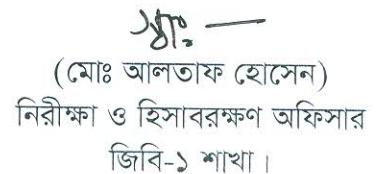 স্বাঃ —
(মোঃ আলতাফ হোসেন)
নিরীক্ষা ও হিসাবরক্ষণ অফিসার
জিবি-১ শাখা।